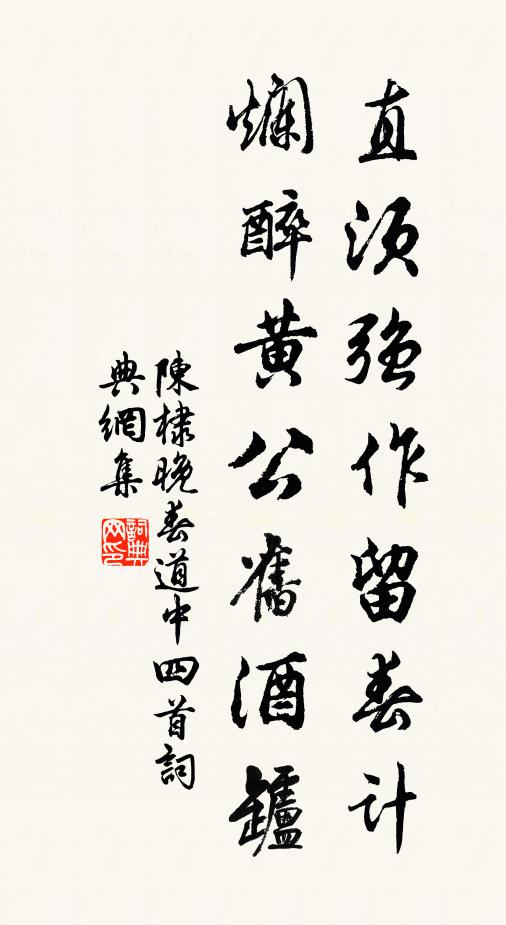 直須強作留春計
爛醉黃公舊酒鑪
陳棣晚春道中四首詞
典網集
詞典网印